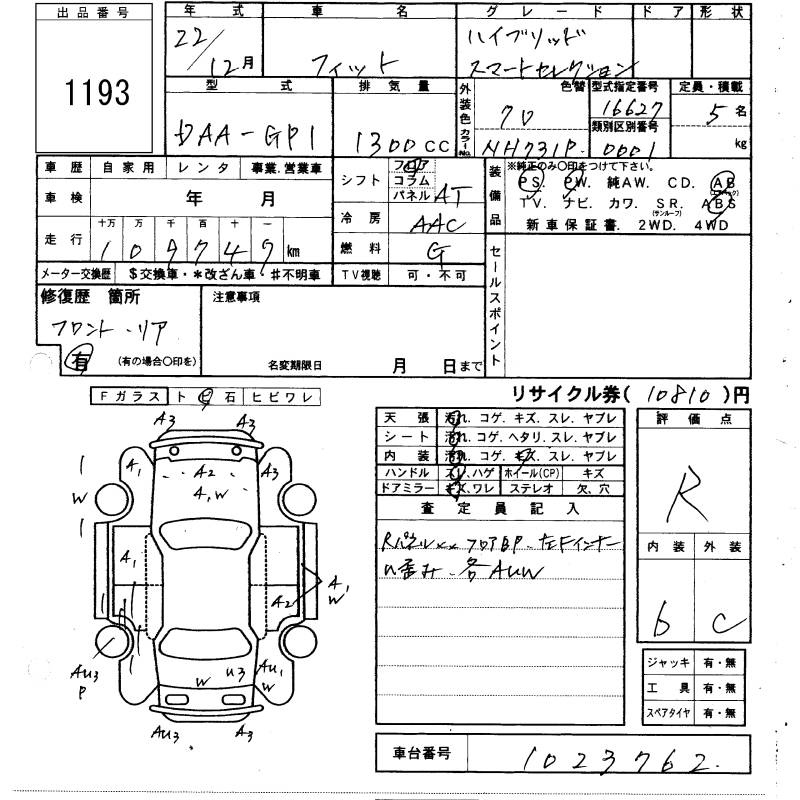 出品番号
1193
年式 車名 グレード ドア 形状
22/12月 フィット ハイブリッド
スマートセレクション
型式 排気量 外装色 色替 型式指定番号 定員・積載
DAA-GP1 1300CC クロ 16627 5名
カラーNo. NH731P 類別区別番号 0001 kg
車歴 自家用 レンタ 事業.営業車
車検 年 月
走行 十万 万 千 百 十 一
109749km
メーター交換歴 $交換車・*改ざん車・♯不明車
シフト フロア コラム パネル AT
冷房 AAC
燃料 G
TV視聴 可・不可
装備品 ※純正のみ〇印をつけて下さい。
PS. PW. 純AW. CD. AB(エアバック)
TV. ナビ. カワ. SR.(サンルーフ) ABS
新車保証書. 2WD. 4WD
セールスポイント
修復歴 箇所
フロント・リア
有 (有の場合〇印を)
注意事項
名変期限日 月 日まで
Fガラス トビ石 ヒビワレ
リサイクル券( 10810 )円
天張 汚れ. コゲ. キズ. スレ. ヤブレ
シート 汚れ. コゲ. ヘタリ. スレ. ヤブレ
内装 汚れ. コゲ. キズ. スレ. ヤブレ
ハンドル スレ.ハゲ ホイール(CP) キズ
ドアミラー キズ.ワレ ステレオ 欠、穴
査定員記入
Rパネルxx フロアBP. 左Fインナー
凹歪み. 各AUW
評価点
R
内装 外装
b C
ジャッキ 有・無
工具 有・無
スペアタイヤ 有・無
車台番号 1023762.
A3 A3
A1 A2 A3
W A,W
A1
A2 A1
W
AU3 P W U3 AU1 W
AU3 A3